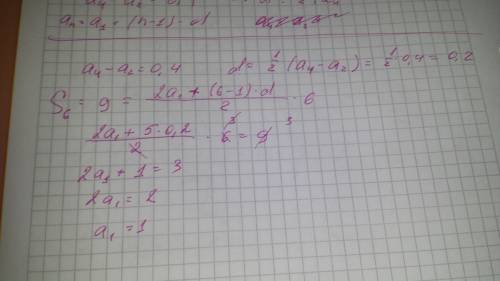 aₙ = a₁ + (n-1) · d
a₄ - a₂ = 0,4   d = 1/2 (a₄ - a₂) = 1/2 · 0,4 = 0,2
S₆ = 9 = (2a₁ + (6-1) · d)/2 · 6
(2a₁ + 5 · 0,2)/2 · 6 = 9   3   3
2a₁ + 1 = 3
2a₁ = 2
a₁ = 1